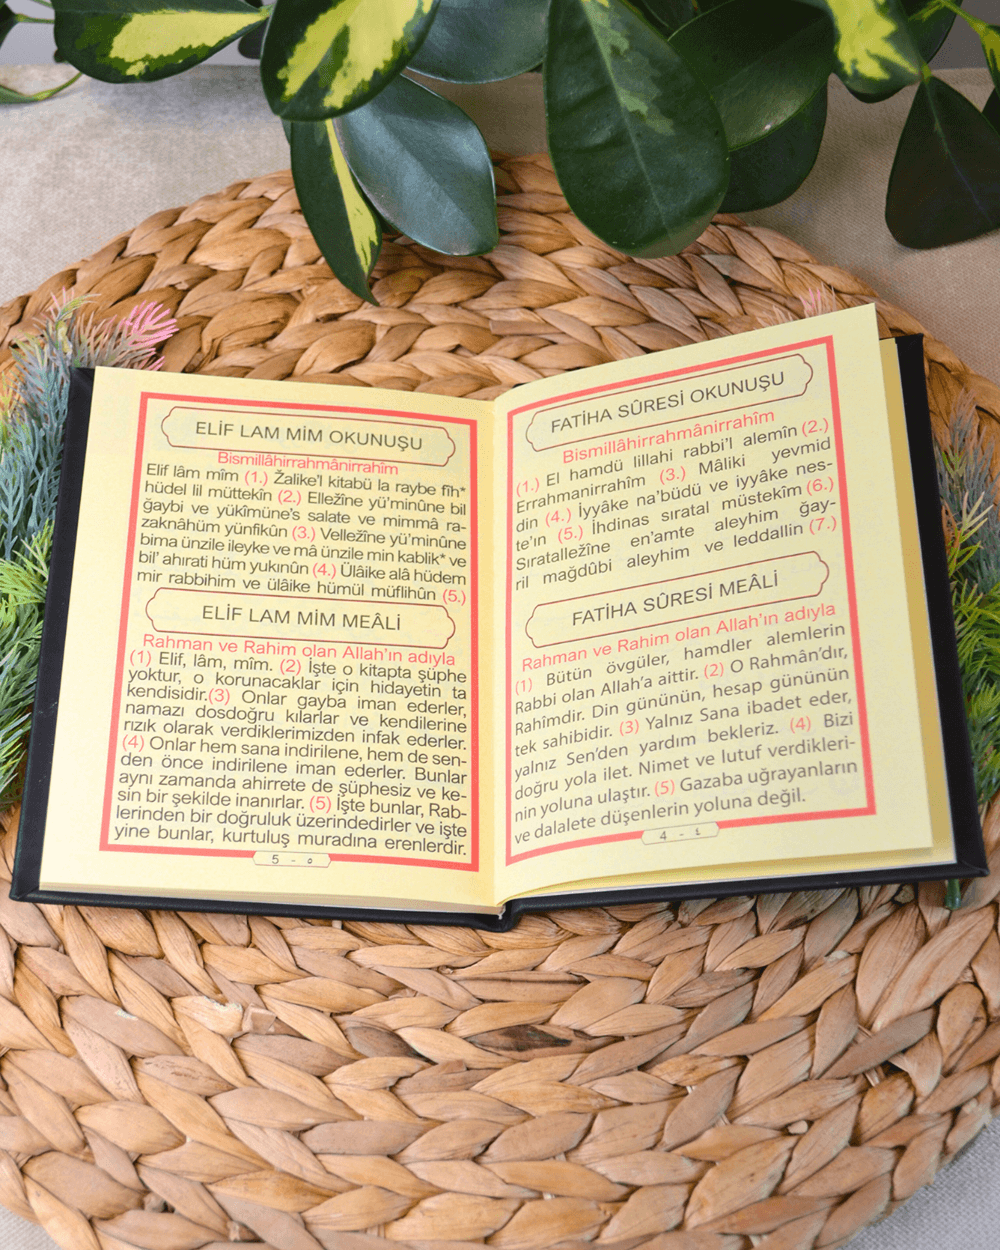 ELİF LAM MİM OKUNUŞU
Bismillâhirrahmânirrahîm
Elif lâm mîm (1.) Žalike'l kitabü la raybe fîh*
hüdel lil müttekîn (2.) Elležîne yü'minûne bil
ğaybi ve yükîmüne's salate ve mimmâ ra-
zaknâhüm yünfikûn (3.) Vellezîne yü'minûne
bima ünzile ileyke ve mâ ünzile min kablik* ve
bil' ahırati hüm yukınûn (4.) Ülâike alâ hüdem
mir rabbihim ve ülâike hümül müflihûn (5.)
ELİF LAM MİM MEÂLİ
Rahman ve Rahim olan Allah'ın adıyla
(1) Elif, lâm, mîm. (2) İşte o kitapta şüphe
yoktur, o korunacaklar için hidayetin ta
kendisidir.(3) Onlar gayba iman ederler,
namazı dosdoğru kılarlar ve kendilerine
rızık olarak verdiklerimizden infak ederler.
(4) Onlar hem sana indirilene, hem de sen-
den önce indirilene iman ederler. Bunlar
aynı zamanda ahirrete de şüphesiz ve ke-
sin bir şekilde inanırlar. (5) İşte bunlar, Rab-
lerinden bir doğruluk üzerindedirler ve işte
yine bunlar, kurtuluş muradına erenlerdir.
5 - ٥
FATİHA SÛRESİ OKUNUŞU
Bismillâhirrahmânirrahîm
(1.) El hamdü lillahi rabbi'l alemîn (2.)
Errahmanirrahîm (3.) Mâliki yevmid
din (4.) İyyâke na'büdü ve iyyâke nes-
te'ın (5.) İhdinas sıratal müstekîm (6.)
Sıratalležîne en'amte aleyhim ğay-
ril mağdûbi aleyhim ve leddallin (7.)
FATİHA SÛRESİ MEÂLİ
Rahman ve Rahim olan Allah'ın adıyla
(1) Bütün övgüler, hamdler alemlerin
Rabbi olan Allah'a aittir. (2) O Rahmân'dır,
Rahîmdir. Din gününün, hesap gününün
tek sahibidir. (3) Yalnız Sana ibadet eder,
yalnız Sen'den yardım bekleriz. (4) Bizi
doğru yola ilet. Nimet ve lutuf verdikleri-
nin yoluna ulaştır. (5) Gazaba uğrayanların
ve dalalete düşenlerin yoluna değil.
4 - ٤